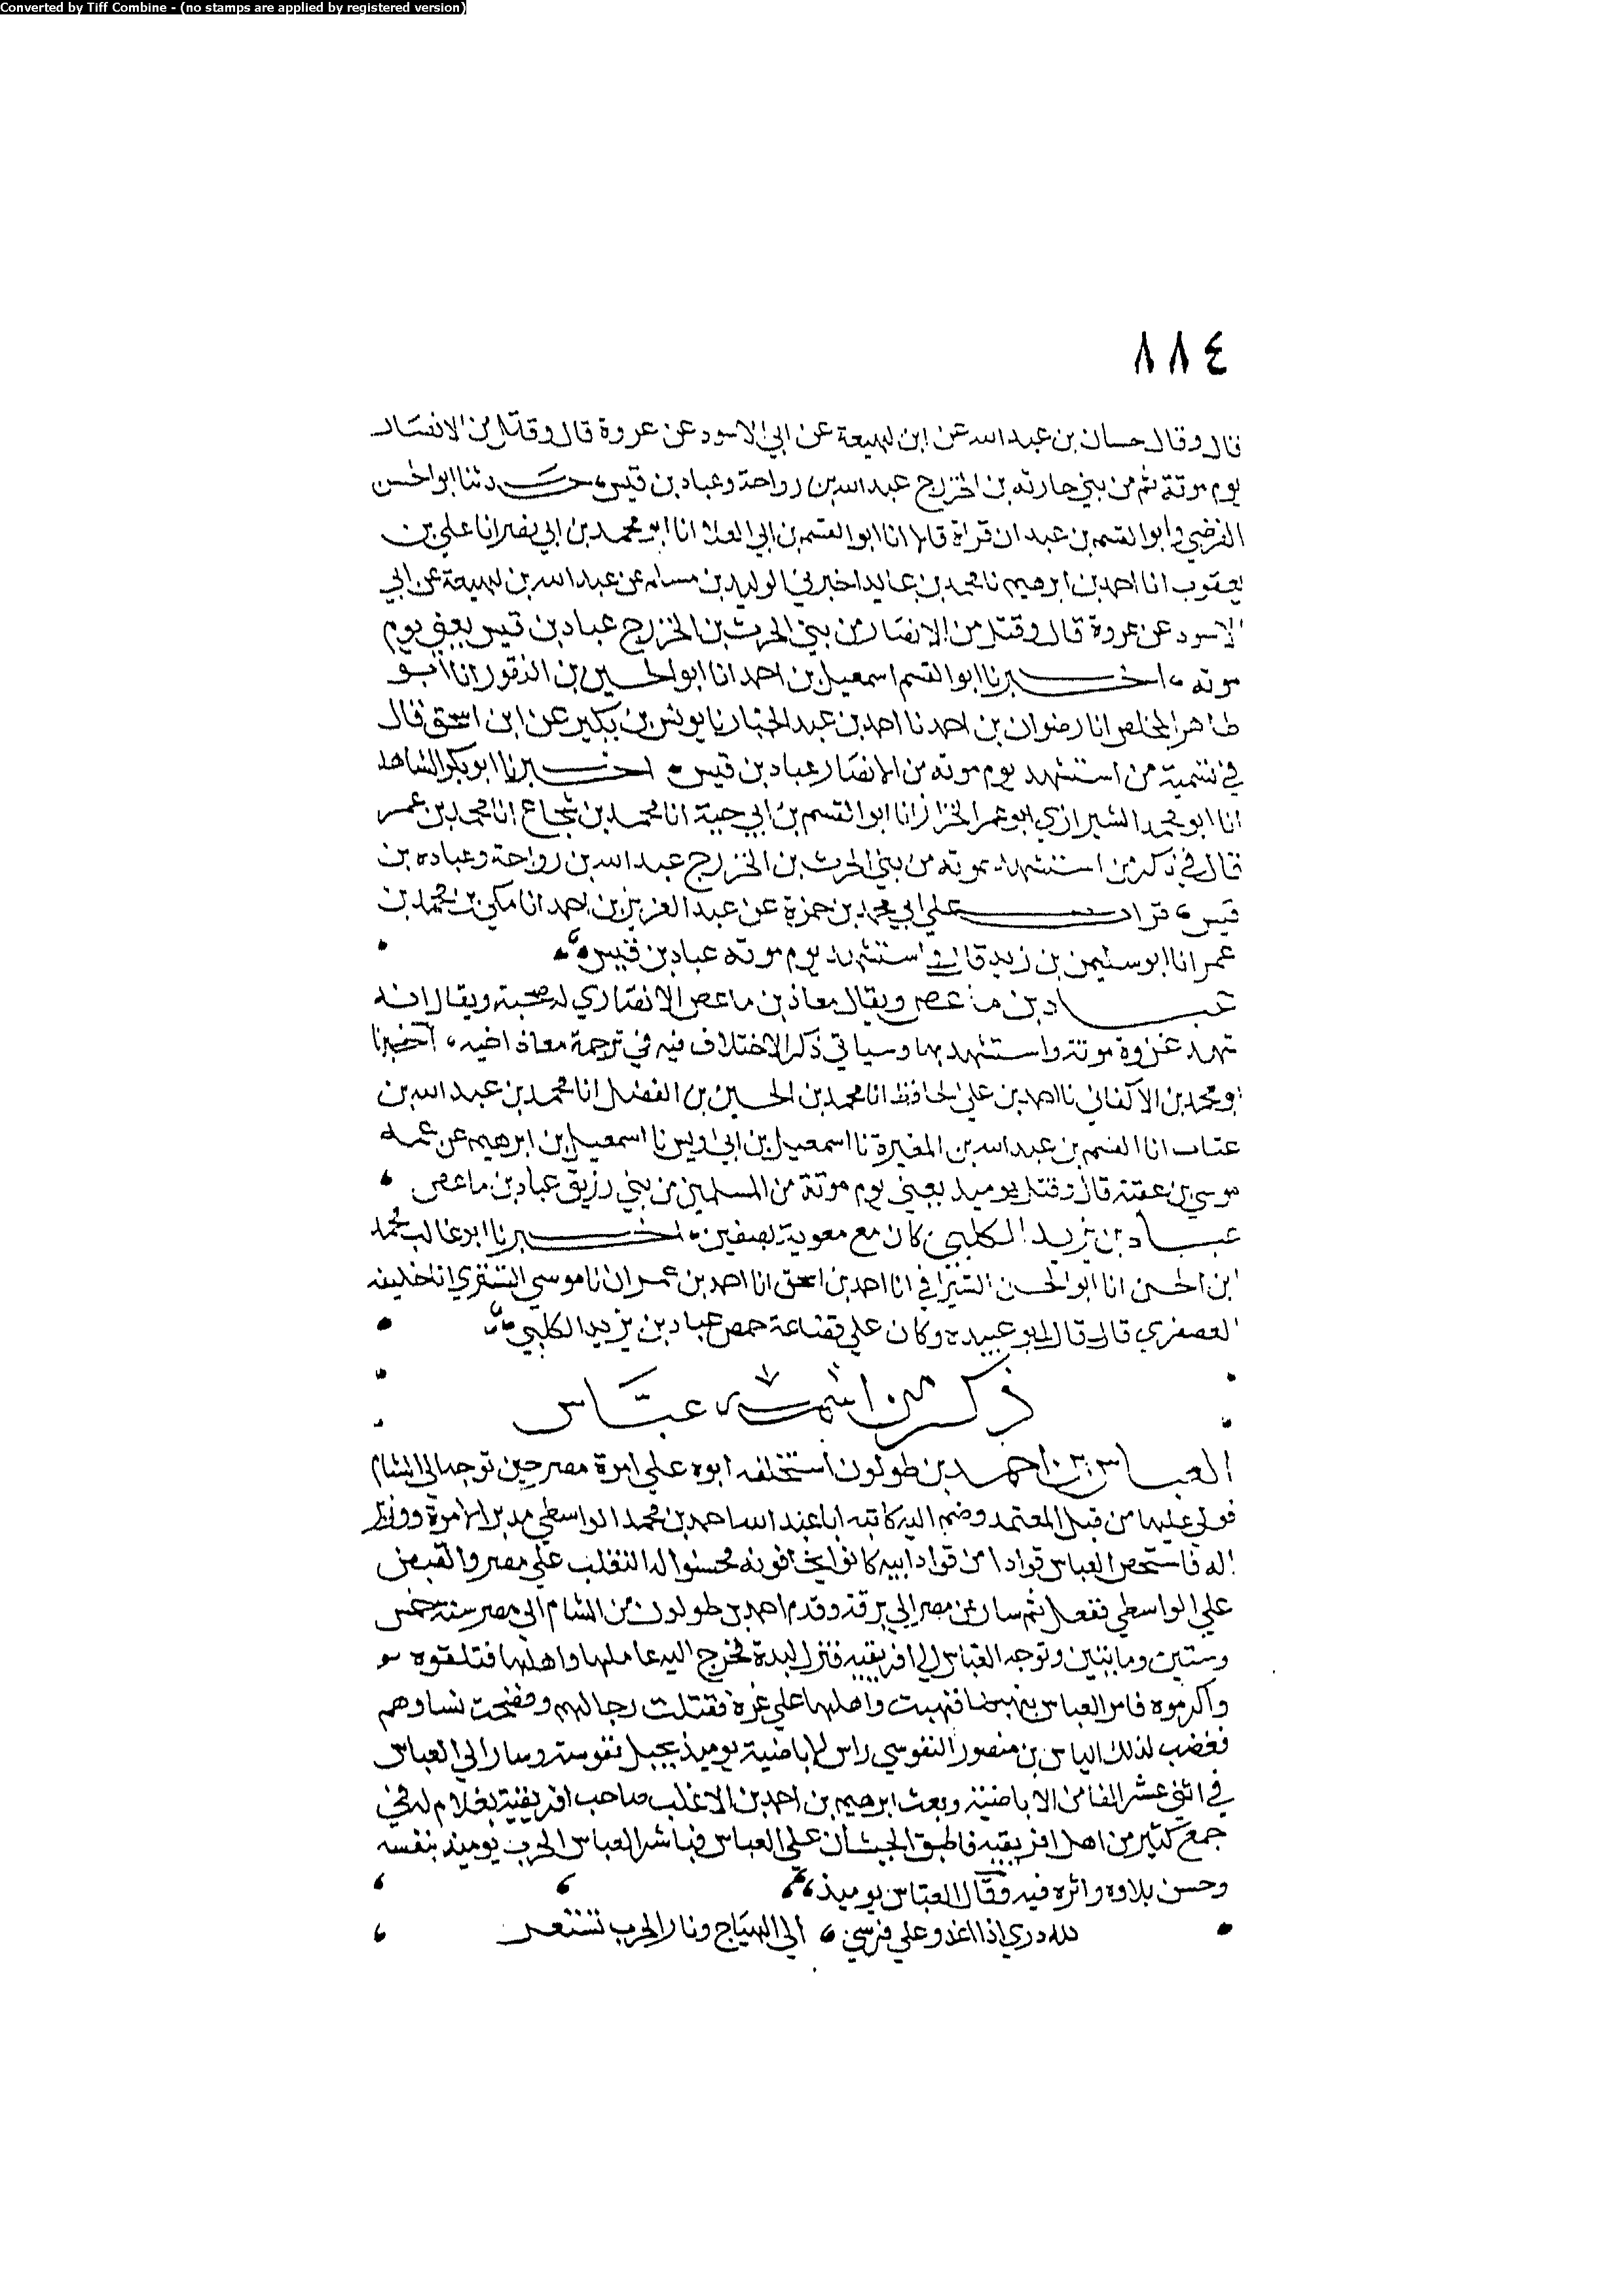 Converted by Tiff Combine - (no stamps are applied by registered version)
٨٨٤
قال وقال حسان بن عبد الله عن ابن لهيعة عن ابي الاسود عن عروة قال وقتل من الانصار
يوم موتة ثم من بني حارثه بن الخزرج عبد الله بن رواحة وعباد بن قيس، حدثنا ابو الحسن
الفرضي وابو القسم بن عبدان قراة قالا انا ابو القسم بن ابي العلا انا ابو محمد بن ابي نصر انا علي بن
يعقوب انا احمد بن ابرهيم نا محمد بن عايد اخبرني الوليد بن مسلم عن عبد الله بن لهيعة عن ابي
الاسود عن عروة قال وقتل من الانصار من بني الحرث بن الخزرج عباد بن قيس يعني يوم
موته، اخبرنا ابو القسم اسمعيل بن احمد انا ابو الحسين بن النقور انا ابو
طاهر المخلص انا رضوان بن احمد نا احمد بن عبد الجبار نا يونس بن بكير عن ابن اسحق قال
في تسمية من استشهد يوم موته من الانصار عباد بن قيس، اخبرنا ابو بكر الشاهد
انا ابو محمد الشيرازي ابو عمر الخزاز انا ابو القسم بن ابي حية انا محمد بن شجاع انا محمد بن عمر
قال في ذكر من استشهد بموته من بني الحرث بن الخزرج عبد الله بن رواحة وعباده بن
قيس، قرات علي ابي محمد بن حمزة عن عبد العزيز بن احمد انا مكي بن محمد بن
عمر انا ابو سليمن بن زبد قال واستشهد يوم موته عباد بن قيس
عباد بن ماعص ويقال معاذ بن ماعص الانصاري له صحبة ويقال انه
شهد غزوة موتة واستشهد بها وسياتي ذكر الاختلاف فيه في ترجمة معاذ اخيه، اخبرنا
ابو محمد بن الاكفاني نا احمد بن علي الحافظ انا محمد بن الحسين بن الفضل انا محمد بن عبد الله بن
عتاب انا القسم بن عبد الله بن المغيرة نا اسمعيل بن ابي اويس نا اسمعيل بن ابرهيم عن عمه
موسي بن عقبة قال وقتل يوميد يعني يوم موتة من المسلمين من بني زريق عباد بن ماعص
عباد بن يزيد الكلبي كان مع معوية بصفين، اخبرنا ابو غالب محمد
ابن الحسن انا ابو الحسن السيرافي انا احمد بن اسحق انا احمد بن عمران نا موسي التستري انا خليفه
العصفري قال قال ابو عبيده وكان علي قضاعة حمص عباد بن يزيد الكلبي
ذكر من اسمه عباس
العباس بن احمد بن طولون استخلفه ابوه علي امرة مصر حين توجه الي الشام
فولي عليها من قبل المعتمد وضم اليه كاتبه ابا عبد الله احمد بن محمد الواسطي مدبر الامرة ووزير
له فاستحص العباس قوادا من قواد ابيه كانوا يخافونه فحسنوا له التغلب علي مصر والقبض
علي الواسطي ففعل ثم سار من مصر الي برقة وقدم احمد بن طولون من الشام الي مصر سنة خمس
وستين ومايتين وتوجه العباس الي افريقيه فنزل لبدة فخرج اليه عاملها واهلها فتلقوه
واكرموه فامر العباس بنهبها فنهبت واهلها علي غرة فقتلت رجالهم وفضحت نساوهم
فغضب لذلك الياس بن منصور النفوسي راس الاباضية يوميذ بجبل نفوسة وسار الي العباس
في اثني عشر الفا من الاباضية وبعث ابرهيم بن احمد بن الاغلب صاحب افريقية بغلام له في
جمع كثير من اهل افريقيه فاطبق الجيشان علي العباس فباشر العباس الحرب يوميذ بنفسه
وحسن بلاوه واثره فيه وقال العباس يوميذ
لله دري اذا اغدو علي فرسي، الي الهياج ونار الحرب تستعر